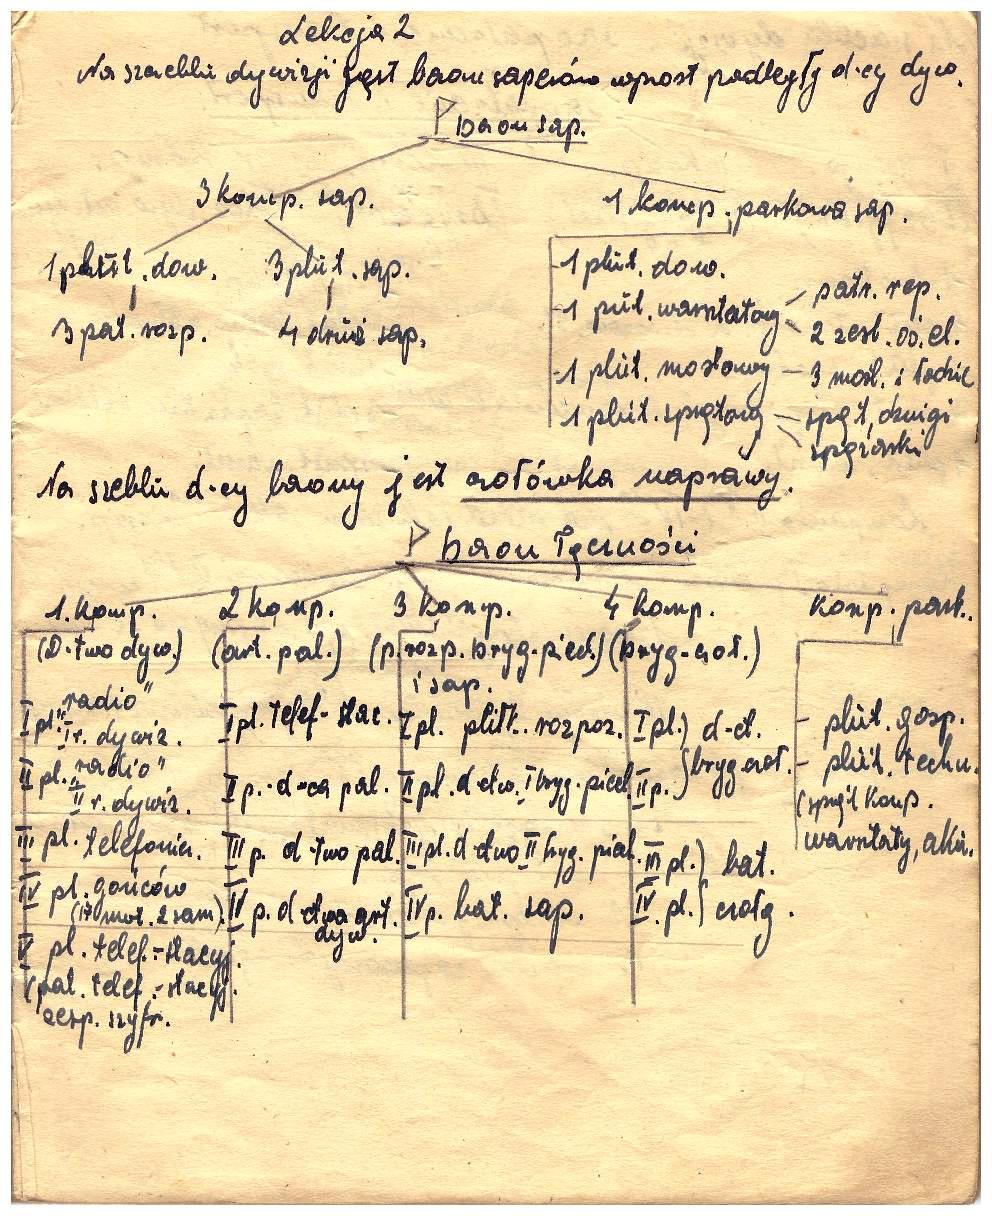 Lekcja 2
Na szczeblu dywizji jest baon saperów wprost podległy d-cy dyw.
baon sap.
3 komp. sap.
1 komp. parkowa sap.
1 plut. dow.
3 plut. sap.
3 pat. rozp.
4 druż sap.
1 plut. dow.
1 plut. warsztatowy
patr. rep.
2 zesł. oś. el.
1 plut. mostowy
3 most. i łodzie
1 plut. sprzętowy
sprzęt, dźwigi
sprężarki
Na szeblu d-cy baony jest czołówka naprawy.
baon Łączności
1. komp.
(D-two dyw.)
I pl. "radio"
I r. dywiz.
II pl. "radio"
II r. dywiz.
III pl. telefonicz.
IV pl. gońców
(17 mot. 2 sam)
V pl. telef.-stacyj.
(pat. telef.-stacyj.
zesp. szyfr.
2 komp.
(art. pal.)
I pl. telef-stac.
II p. d-ca pal.
III p. d-two pal.
IV p. d-ctwa art.
dyw.
3 komp.
(p. rozp. bryg. piech)
i sap.
I pl. rozpoz.
II pl. d-ctw. I bryg. piech
III pl. d-ctwo II bryg. piech.
IV p. bat. sap.
4 komp.
(bryg-czoł.)
I pl.) d-ct.
II p.) bryg czoł.
III pl.) bat.
IV pl.) czołg.
komp. park.
- plut. gosp.
- plut. techn.
(sprzęt komp.
warsztaty, akum.